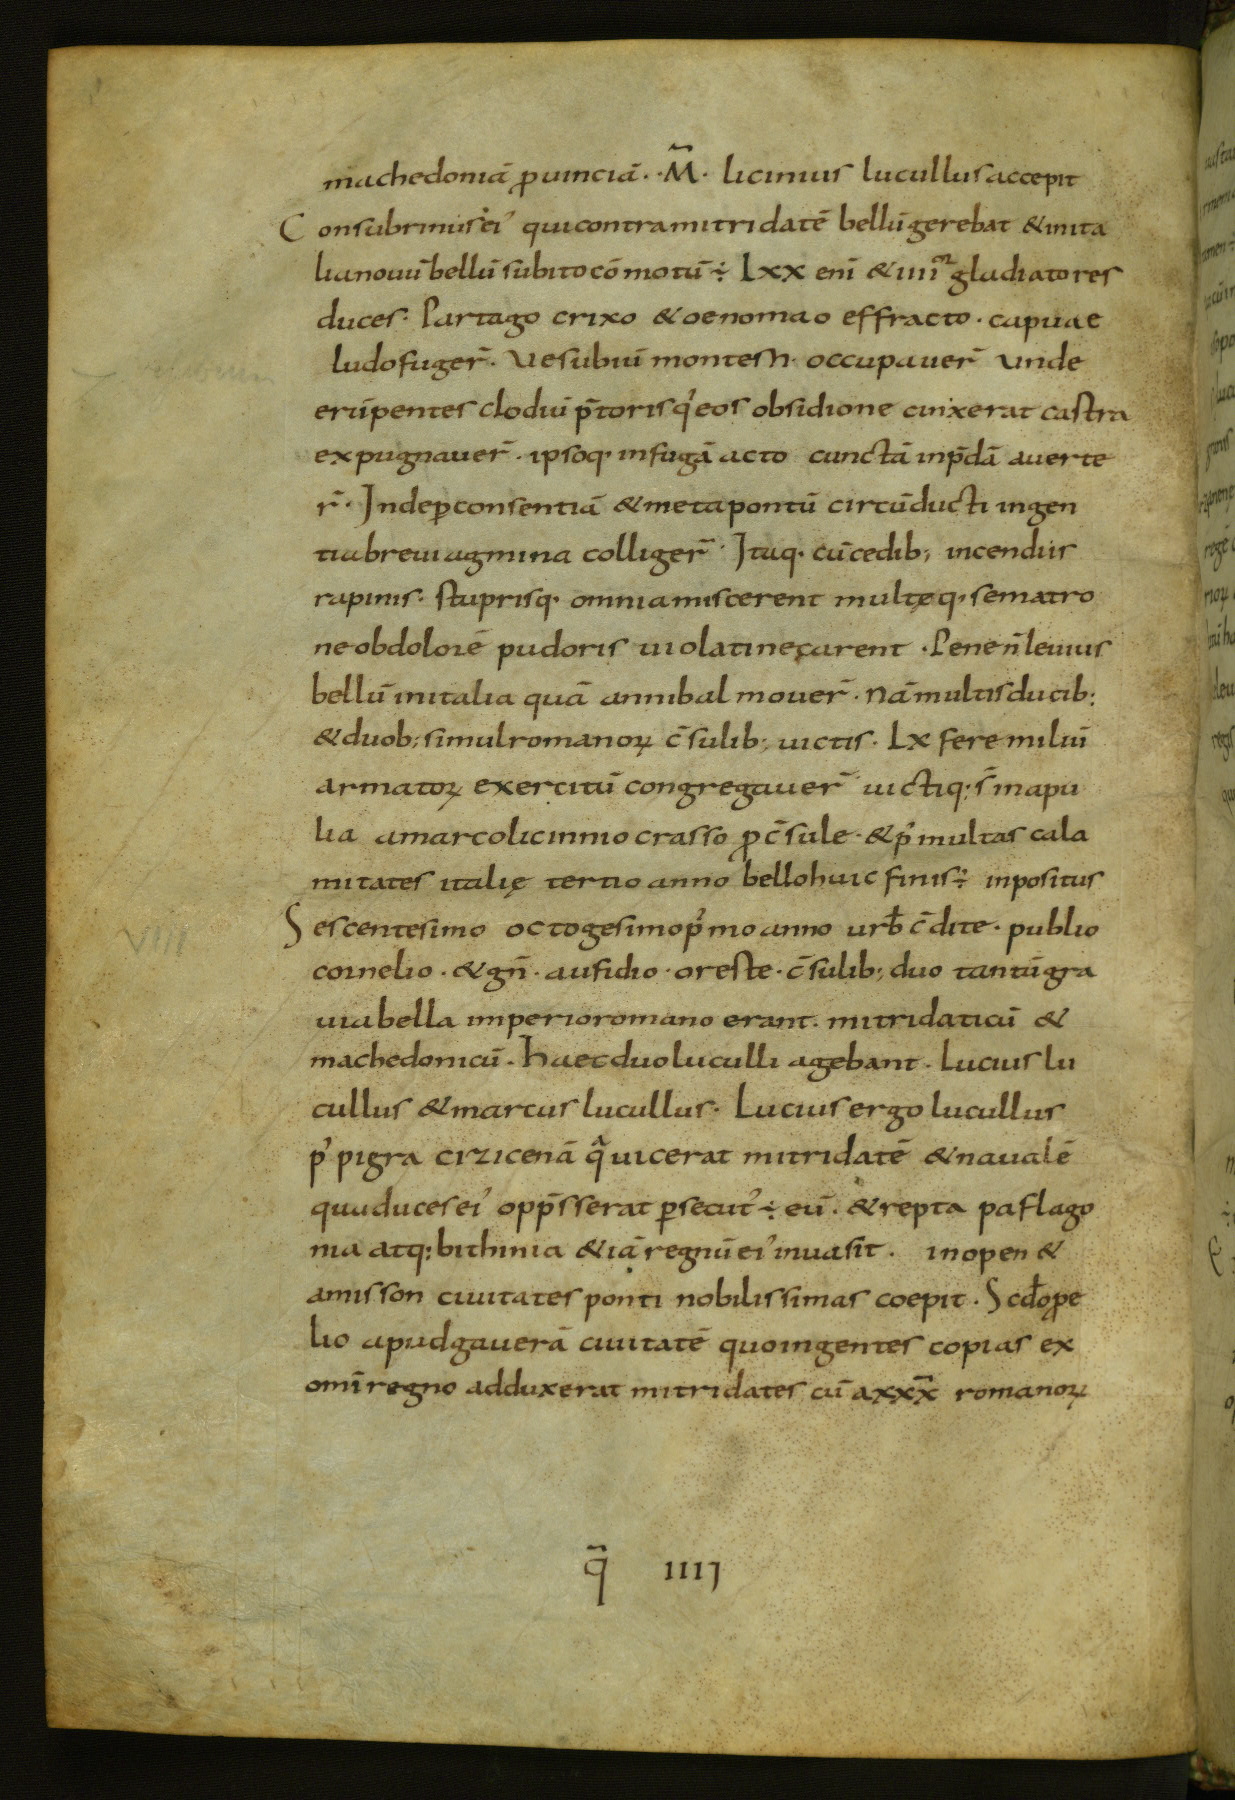 machedoniā ꝓuinciā · M̄ · licinius lucullus accepit
Consubrinus ei᾽ qui contra mitridatē bellū gerebat & in ita
lia nouū bellū subito cō motū ÷ Lxx enī & iiii gladiatores
duces · Partago crixo & oenomao effracto · capuae
ludo fuger̄ · Vesubiū montem · occupauer̄ Vnde
erūpentes clodiū p̄toris q᾽ eos obsidione cinxerat castra
expugnauer̄ · ipsoq· in fugā acto cunctā in p̄dā auerte
r̄ · Inde ꝑ consentiā & metapontū circūducti ingen
tia breui agmina colliger̄ · Itaq· cū cedib; incendiis
rapinis · stuprisq· omnia miscerent multęq· se matro
ne ob dolorē pudoris uiolati necarent · Pene n̄ leuius
bellū in italia quā annibal mouer̄ · Nā multis ducib;
& duob; simul romanoꝝ c̄sulib; uictis · Lx fere miliū
armatoꝝ exercitū congregauer̄ uictiq; s̄ in apu
lia a marco licinnio crasso ꝓ c̄sule · & p᾽ multas cala
mitates italię tertio anno bello huic finis ÷ inpositus
Sescentesimo octogesimo p᾽mo anno urƀ c̄dite · publio
cornelio · & gn̄ · aufidio · oreste · c̄sulib; duo tantū gra
uia bella imperio romano erant · mitridaticū &
machedonicū · haec duo luculli agebant · Lucius lu
cullus & marcus lucullus · Lucius ergo lucullus
p᾽ pigra cizicenā q̄ uicerat mitridatē & naualē
qua duces ei᾽ opp̄sserat ꝑsecut᾽ ÷ eū · & repta paflago
nia atq; bithinia & iā regnū ei᾽ inuasit · inopen &
amisson ciuitates ponti nobilissimas coepit · Scđo ꝓe
lio apud gauerā ciuitatē quo ingentes copias ex
omī regno adduxerat mitridates cū a xxx̄ romanoꝝ
VIII
q̄ IIII